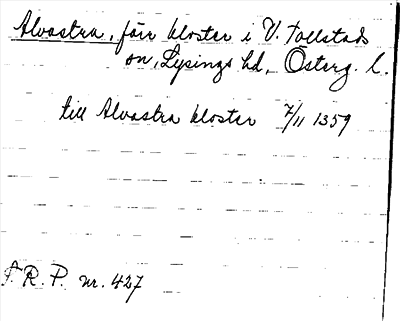 Alvastra, förr kloster i V. Tollstads
sn, Lysings hd, Österg. l.
till Alvastra kloster 7/11 1359
S. R. P. nr. 427